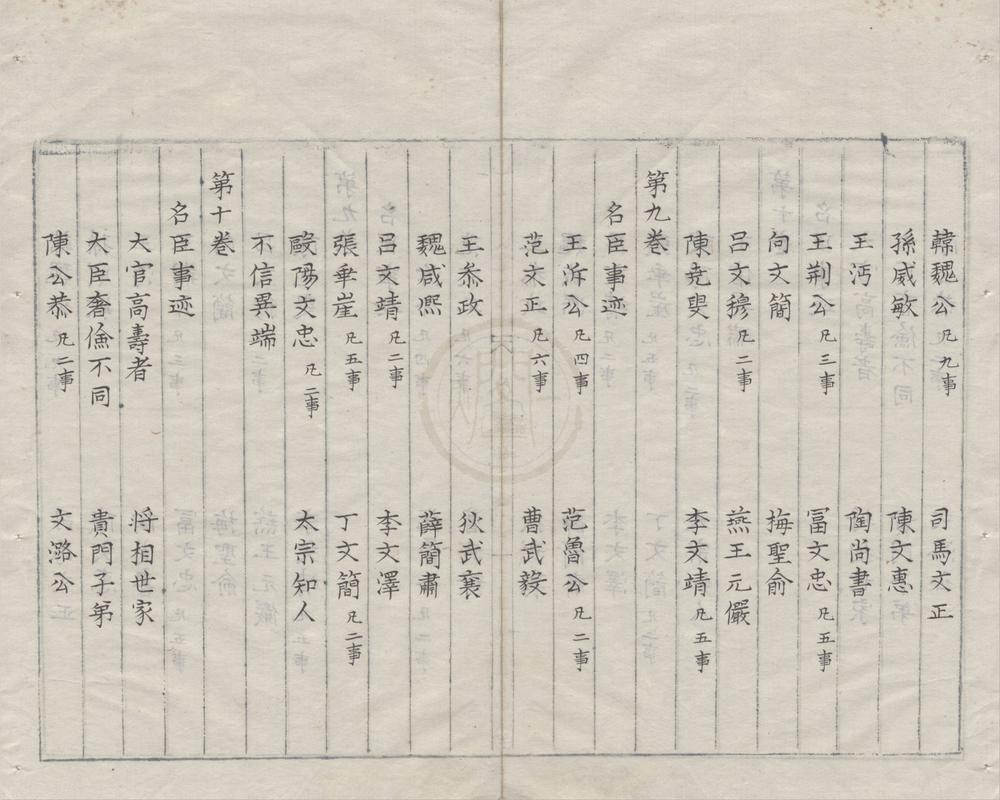 韓魏公凡九事　司馬文正
孫威敏　陳文惠
王沔　陶尚書
王荆公凡三事　冨文忠凡五事
向文簡　梅聖俞
呂文穆凡二事　燕王元儼
陳堯叟　李文靖凡五事
第九卷
名臣事迹
王沂公凡四事　范魯公凡二事
范文正凡六事　曹武毅
王叅政　狄武襄
魏咸熈　薛簡肅
吕文靖凡二事　李文澤
張乖崖凡五事　丁文簡凡二事
歐陽文忠凡二事　太宗知人
不信異端
第十卷
名臣事迹
大官高壽者　将相世家
大臣奢儉不同　貴門子弟
陳公恭凡二事　文潞公